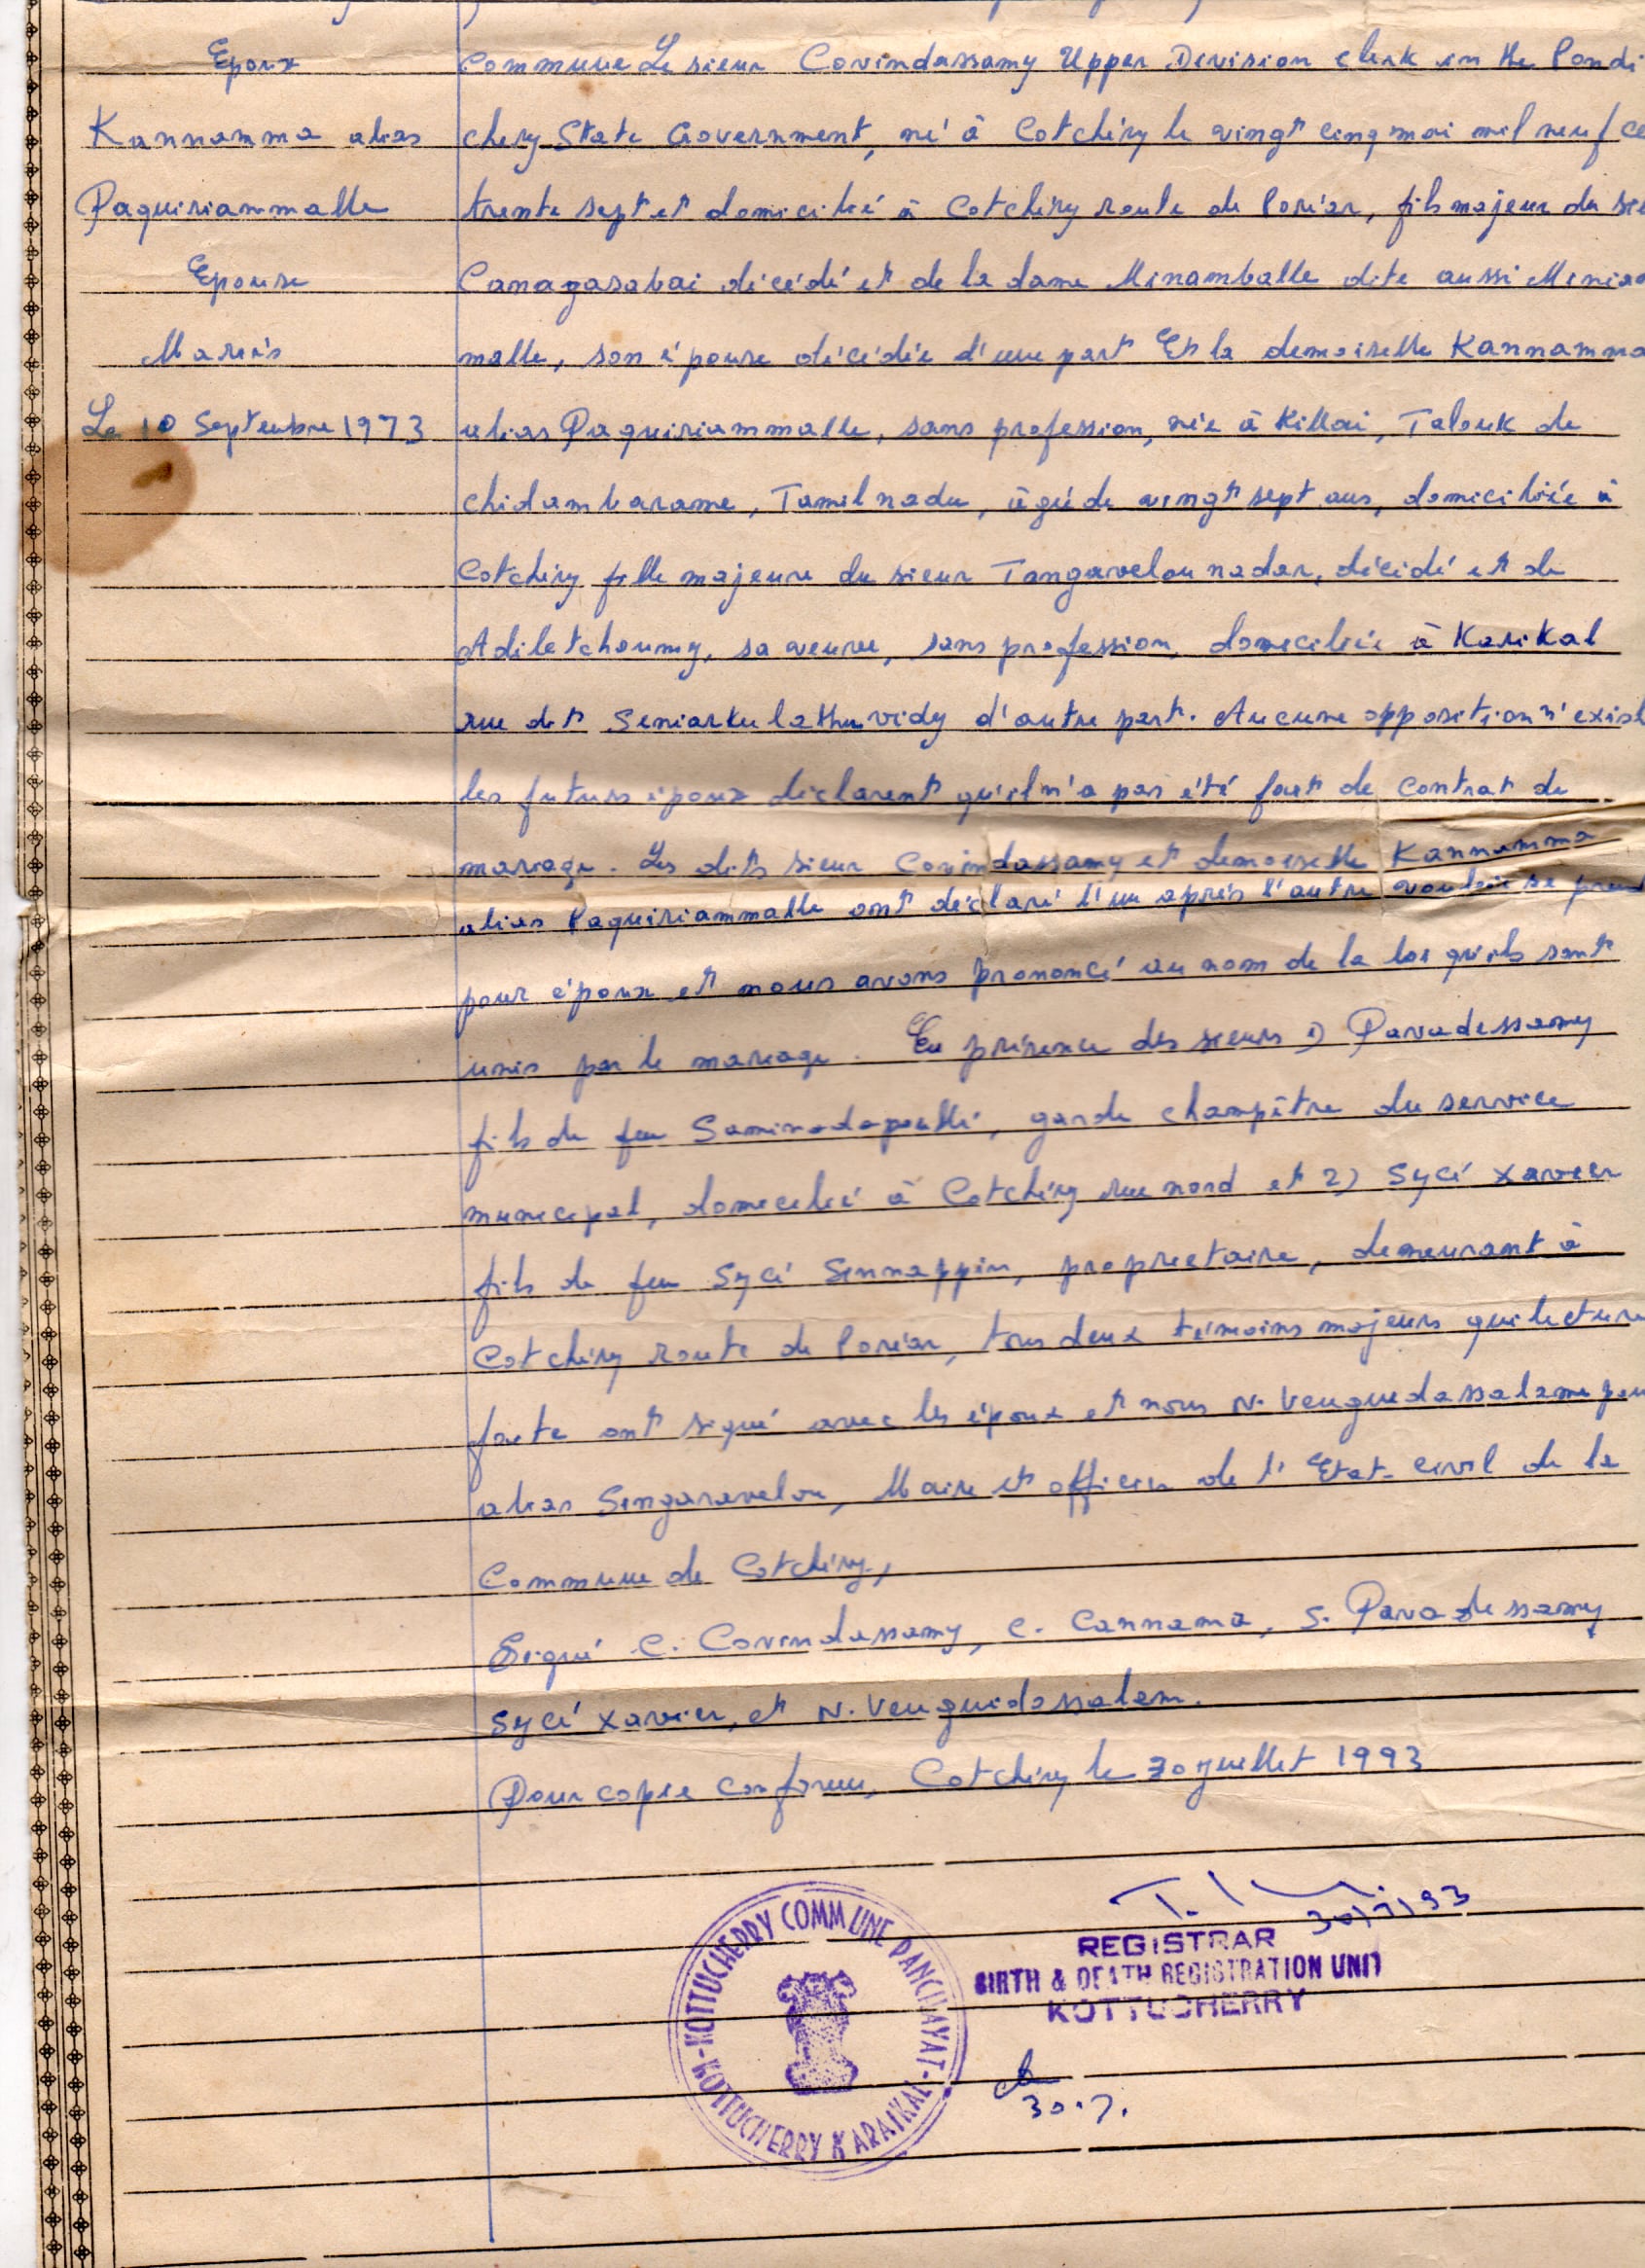 Epoux
Kannamma alias
Paquiriammalle
Epouse
Mariés
Le 10 Septembre 1973
Commune Le sieur Covindassamy Upper Division clerk in the Pondi
chery State Government, né à Cotchéry le vingt cinq mai mil neuf ce
trente sept et domicilié à Cotchéry route de Poréar, fils majeur du sie
Canagasabai décédé et de la dame Minamballe dite aussi Miniam
malle, son épouse décédée d'une part Et la demoiselle Kannamma
alias Paquiriammalle, sans profession, née à Killai, Talouk de
chidambarame, Tamilnadu, âgé de vingt sept ans, domiciliée à
Cotchéry fille majeure du sieur Tangavelou nadar, décédé et de
Adiletchoumy, sa veuve, sans profession, domiciliée à Karikal
rue dit Seniarkulathu vidy d'autre part. Aucune opposition n'exist
les futurs époux déclarent qu'il n'a pas été fait de contrat de
mariage. Les dits sieur Covindassamy et demoiselle Kannamma
alias Paquiriammalle ont déclaré l'un après l'autre vouloir se prend
pour époux et nous avons prononcé au nom de la loi qu'ils sont
unis par le mariage. En présence des sieurs 1) Pavadessamy
fils de feu Saminadapoullé, garde champêtre du service
municipal, domicilié à Cotchéry rue nord et 2) Sycé Xavier
fils de feu Sycé Sinnappin, proprietaire, demeurant à
Cotchéry route de Poréar, tous deux témoins majeurs qui lecture
faite ont signé avec les époux et nous N. Venguedassalame pou
alias Singaravelou, Maire et officier de l'Etat-civil de la
Commune de Cotchéry,
Signé C. Covindassamy, C. Cannama, S. Pavadessamy
Sycé Xavier, et N. Venguidassalam.
Pour copie conforme, Cotchéry le 30 juillet 1993
30/7/93
REGISTRAR
BIRTH & DEATH REGISTRATION UNIT
KOTTUCHERRY
KOTTUCHERRY COMMUNE PANCHAYAT - KOTTUCHERRY KARAIKAL
30.7.